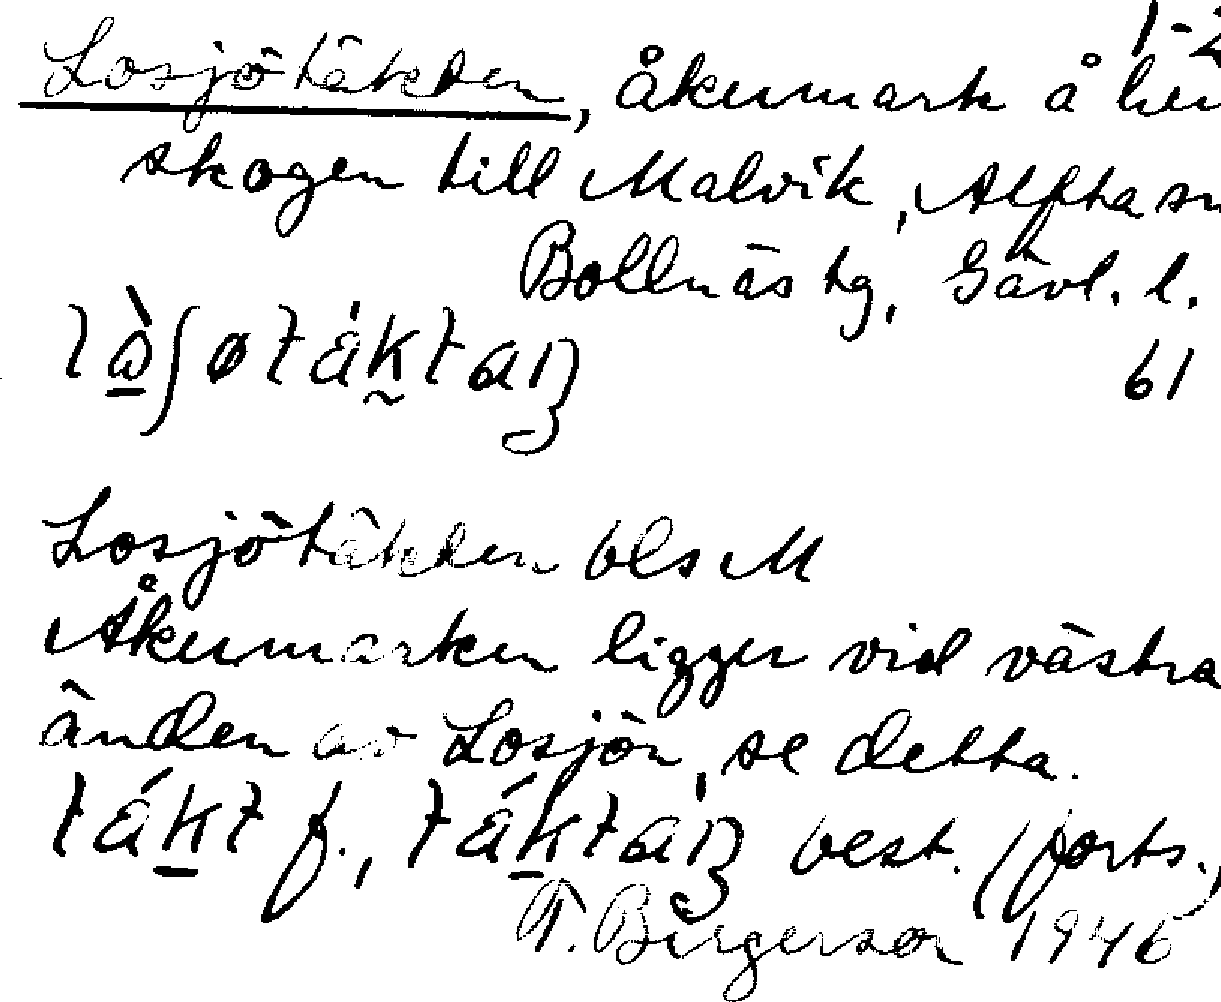 1-2
Losjötäkden, åkermark å hem
skogen till Malvik, Alfta sn
Bollnäs tg, Gävl. l.
61
Losjötäkden bls M
Åkermarken ligger vid västra
änden av Losjön, se detta.
f., best. (forts.)
T. Birgerson 1946